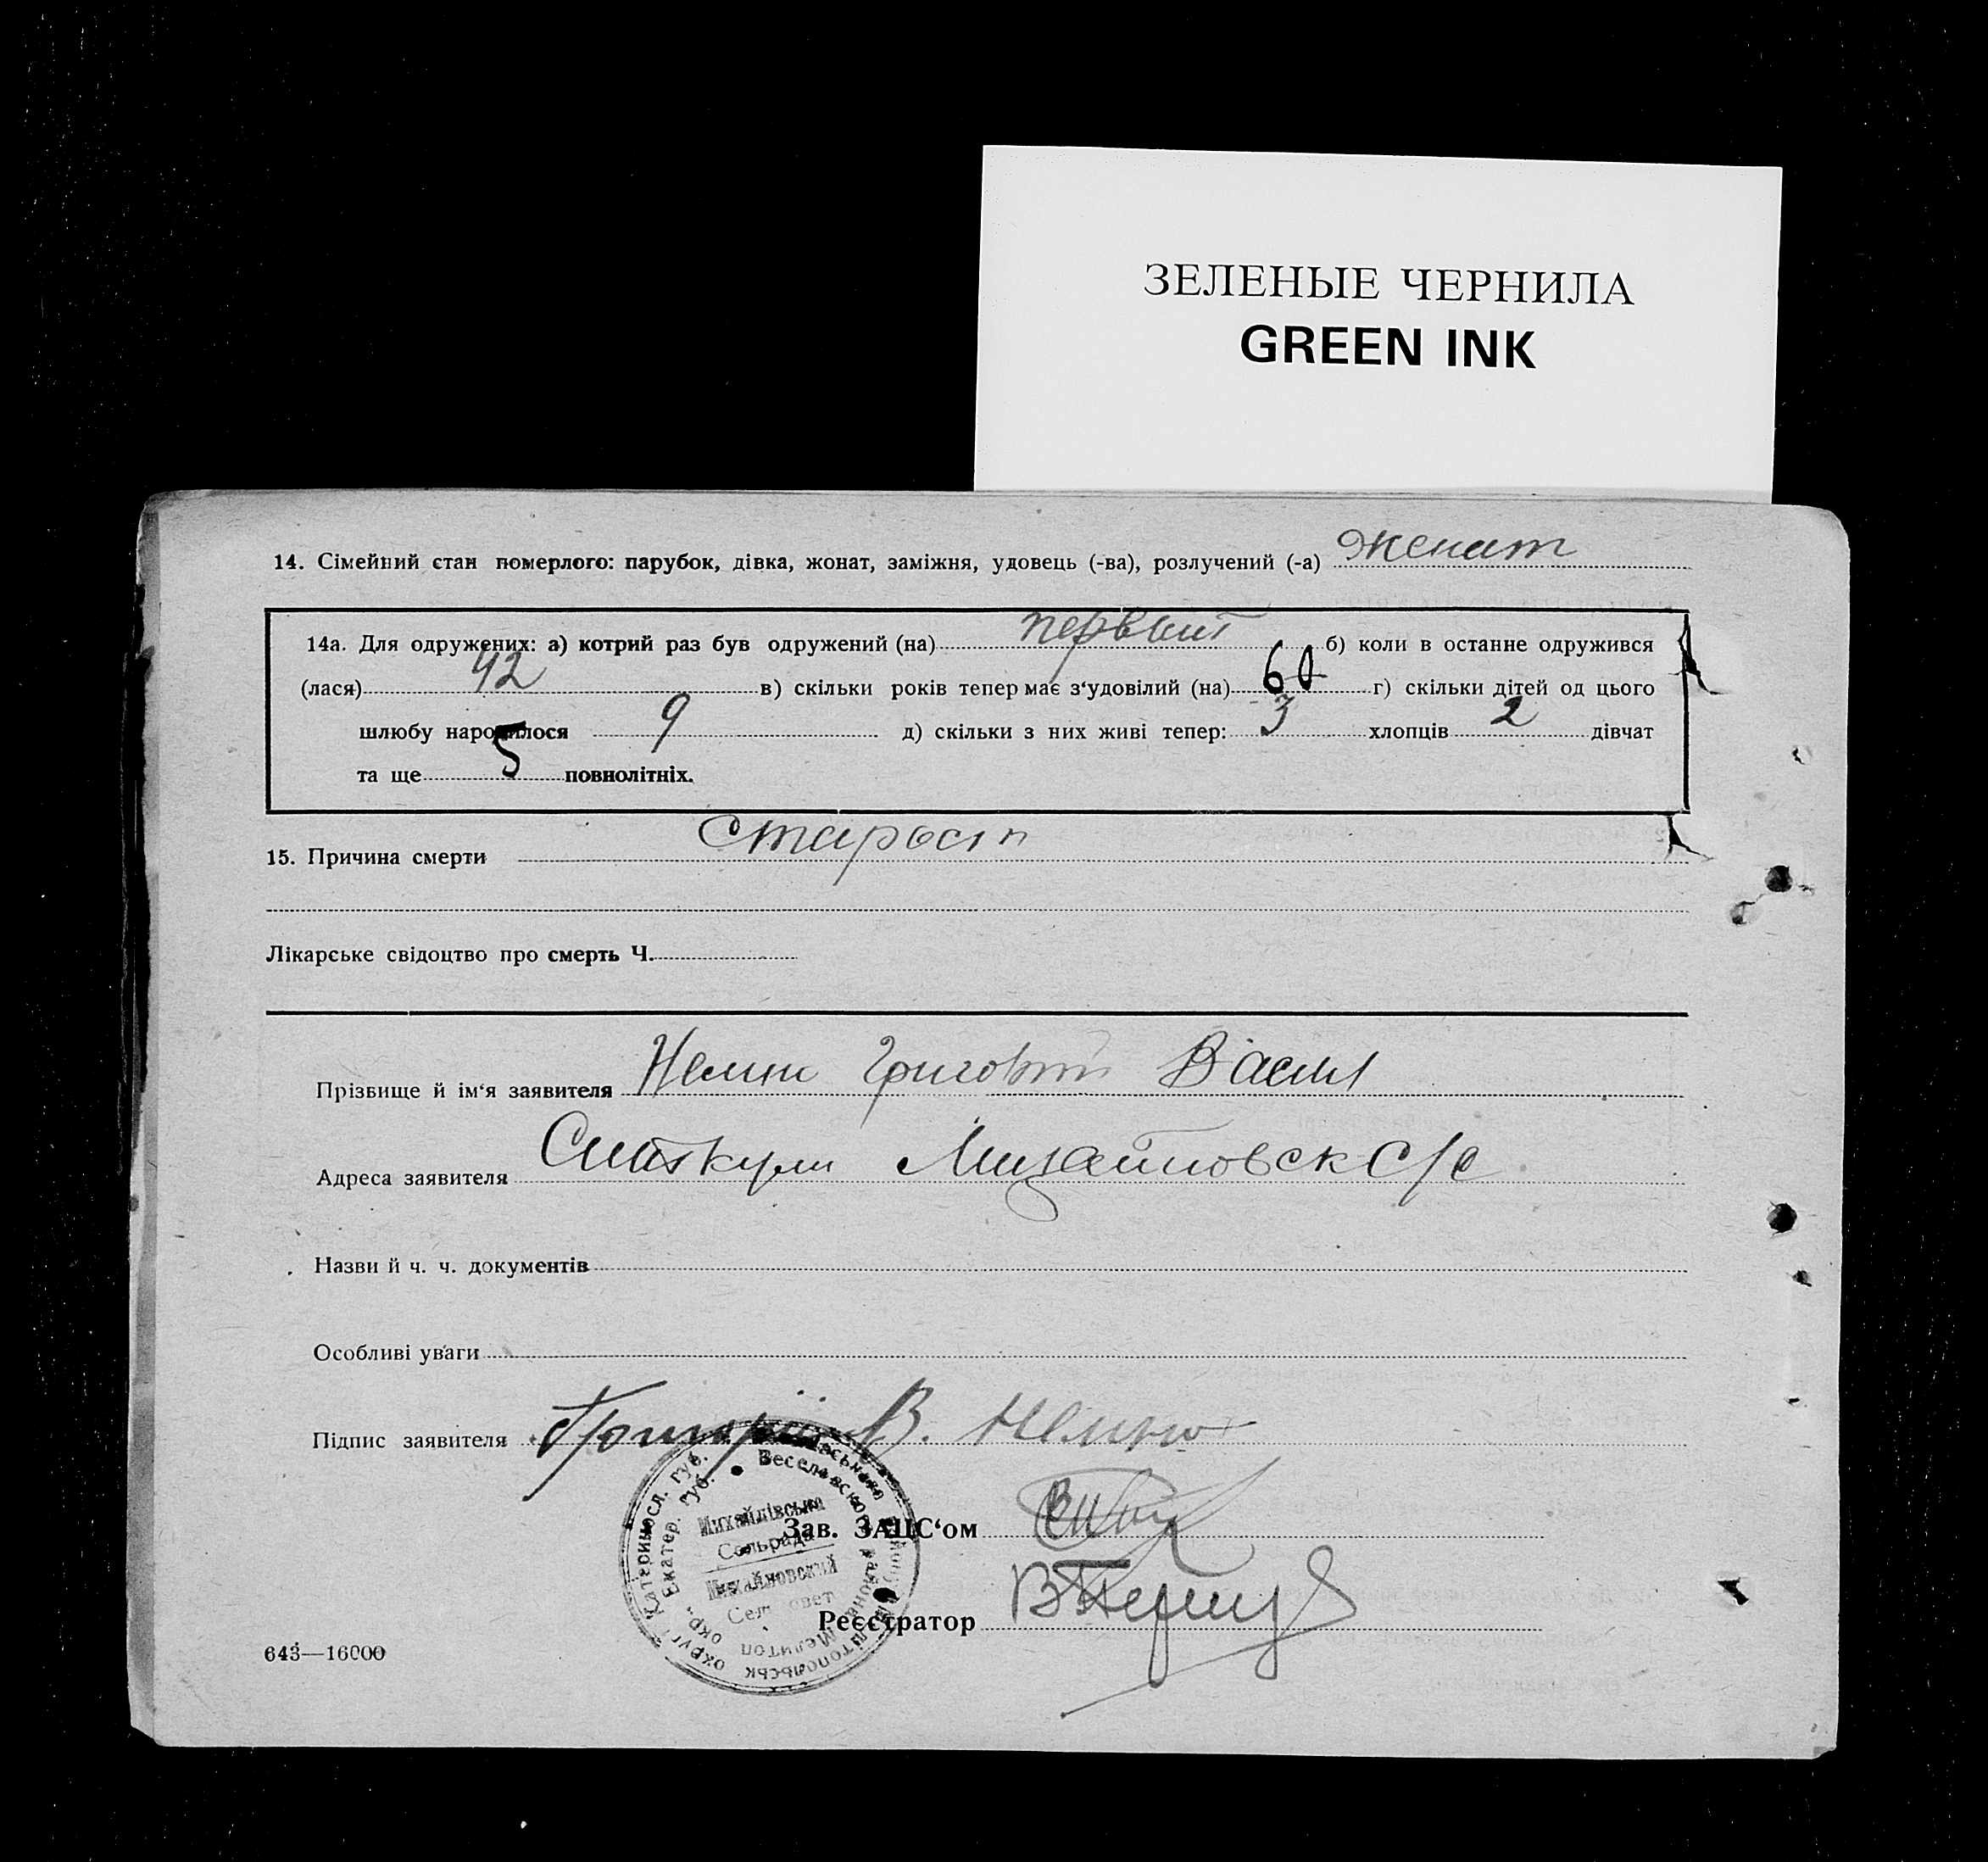 ЗЕЛЕНЫЕ ЧЕРНИЛА
GREEN INK
14. Сімейний стан померлого: парубок, дівка, жонат, заміжня, удовець (-ва), розлучений (-а) Женат
14а. Для одружених: а) котрий раз був одружений (на) первый б) коли в останне одружився
(лася) 42 в) скільки років тепер має з‘удовілий (на) 60 г) скільки дітей од цього
шлюбу народилося 9 д) скільки з них живі тепер: 3 хлопців 2 дівчат
та ще 5 повнолітніх.
15. Причина смерти Старость
Лікарське свідоцтво про смерть Ч.
Прізвище й ім‘я заявителя Григорий Васил
Адреса заявителя Михайловск с/с
Назви й ч. ч. документів
Особливі уваги
Підпис заявителя Григорій В.
Зав. ЗАЦС‘ом
Реєстратор
Михайлівська
Сельрада
Михайловский
Сельсовет
Катериносл. губ.
Екатер. губ.
Веселовского района Мелитоп окр.
643—16000